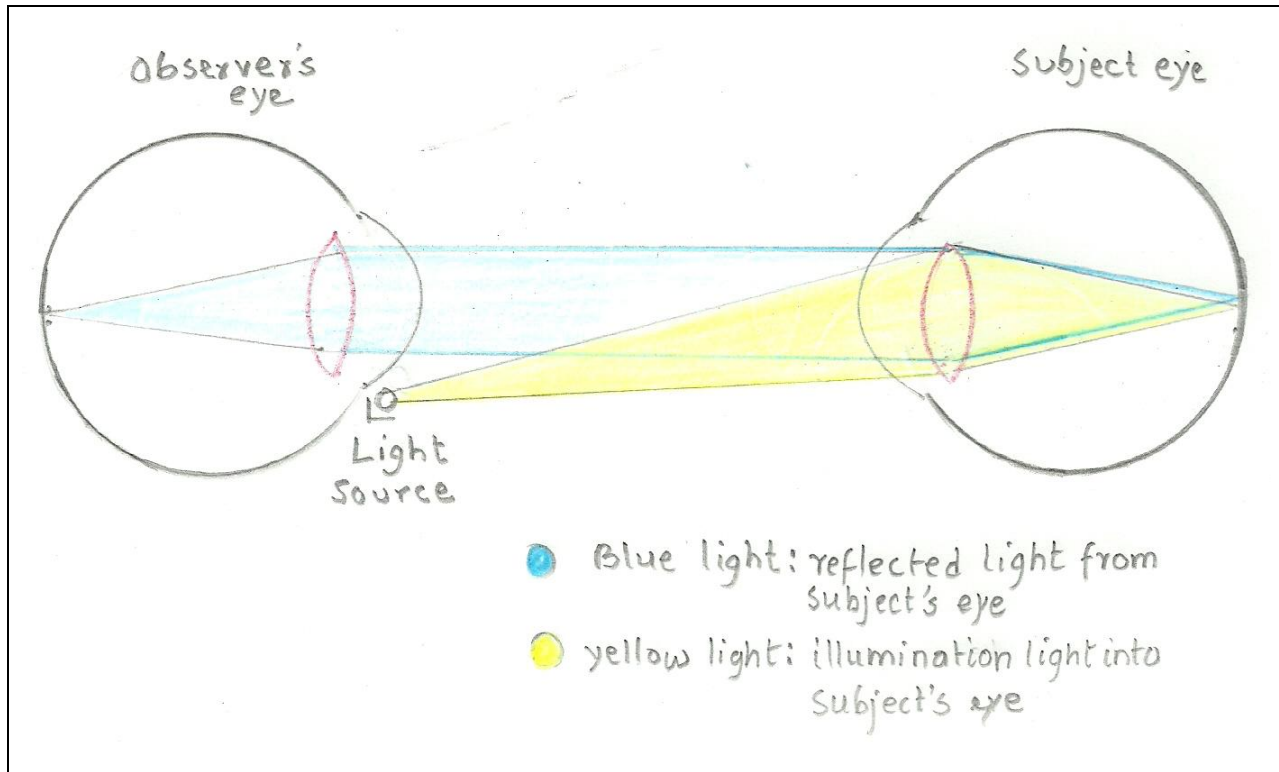 Observer's
eye
Subject eye
Light
Source
Blue light: reflected light from
Subject's eye
yellow light: illumination light into
Subject's eye